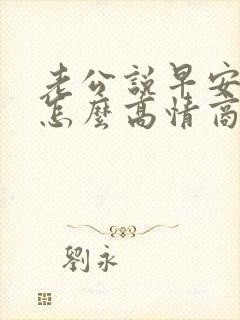 老公說早安
怎麼高情商
劉永